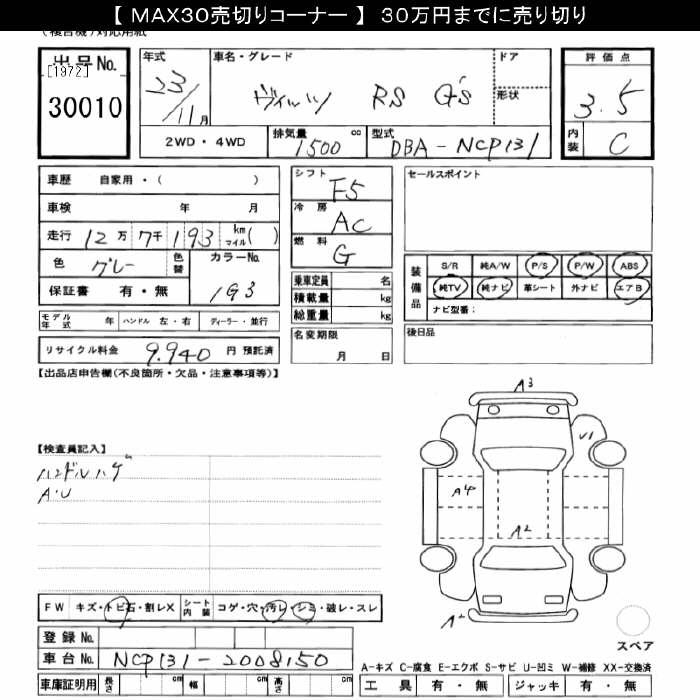 【 MAX30売切りコーナー 】 30万円までに売り切り
出品No.
[1972]
30010
年式
23/11月
車名・グレード
ヴィッツ RS G's
ドア
形状
2WD・4WD
排気量
1500 cc
型式
DBA-NCP131
評価点
3.5
内装
C
車歴 自家用・( )
車検 年 月
走行 12万 7千 193 km マイル( )
色 グレー 色替 カラーNo. 1G3
保証書 有・無
モデル年式 年 ハンドル 左・右 ディーラー・並行
リサイクル料金 9.940 円 預託済
シフト
F5
冷房
AC
燃料
G
乗車定員 名
積載量 kg
総重量 kg
名変期限
月 日
セールスポイント
装備品
S/R 純A/W P/S P/W ABS
純TV 純ナビ 革シート 外ナビ エアB
ナビ型番:
後日品
【出品店申告欄(不良箇所・欠品・注意事項等)】
【検査員記入】
ハンドルハゲ
A・U
A3
U1
A4
A2
A2
FW キズ・トビ石・割レX シート内装 コゲ・穴・汚レ・シミ・破レ・スレ
登録No.
車台No. NCP131-2008150
車庫証明用 長さ cm 幅 cm 高さ cm
スペア
A-キズ C-腐食 E-エクボ S-サビ U-凹ミ W-補修 XX-交換済
工具 有・無 ジャッキ 有・無